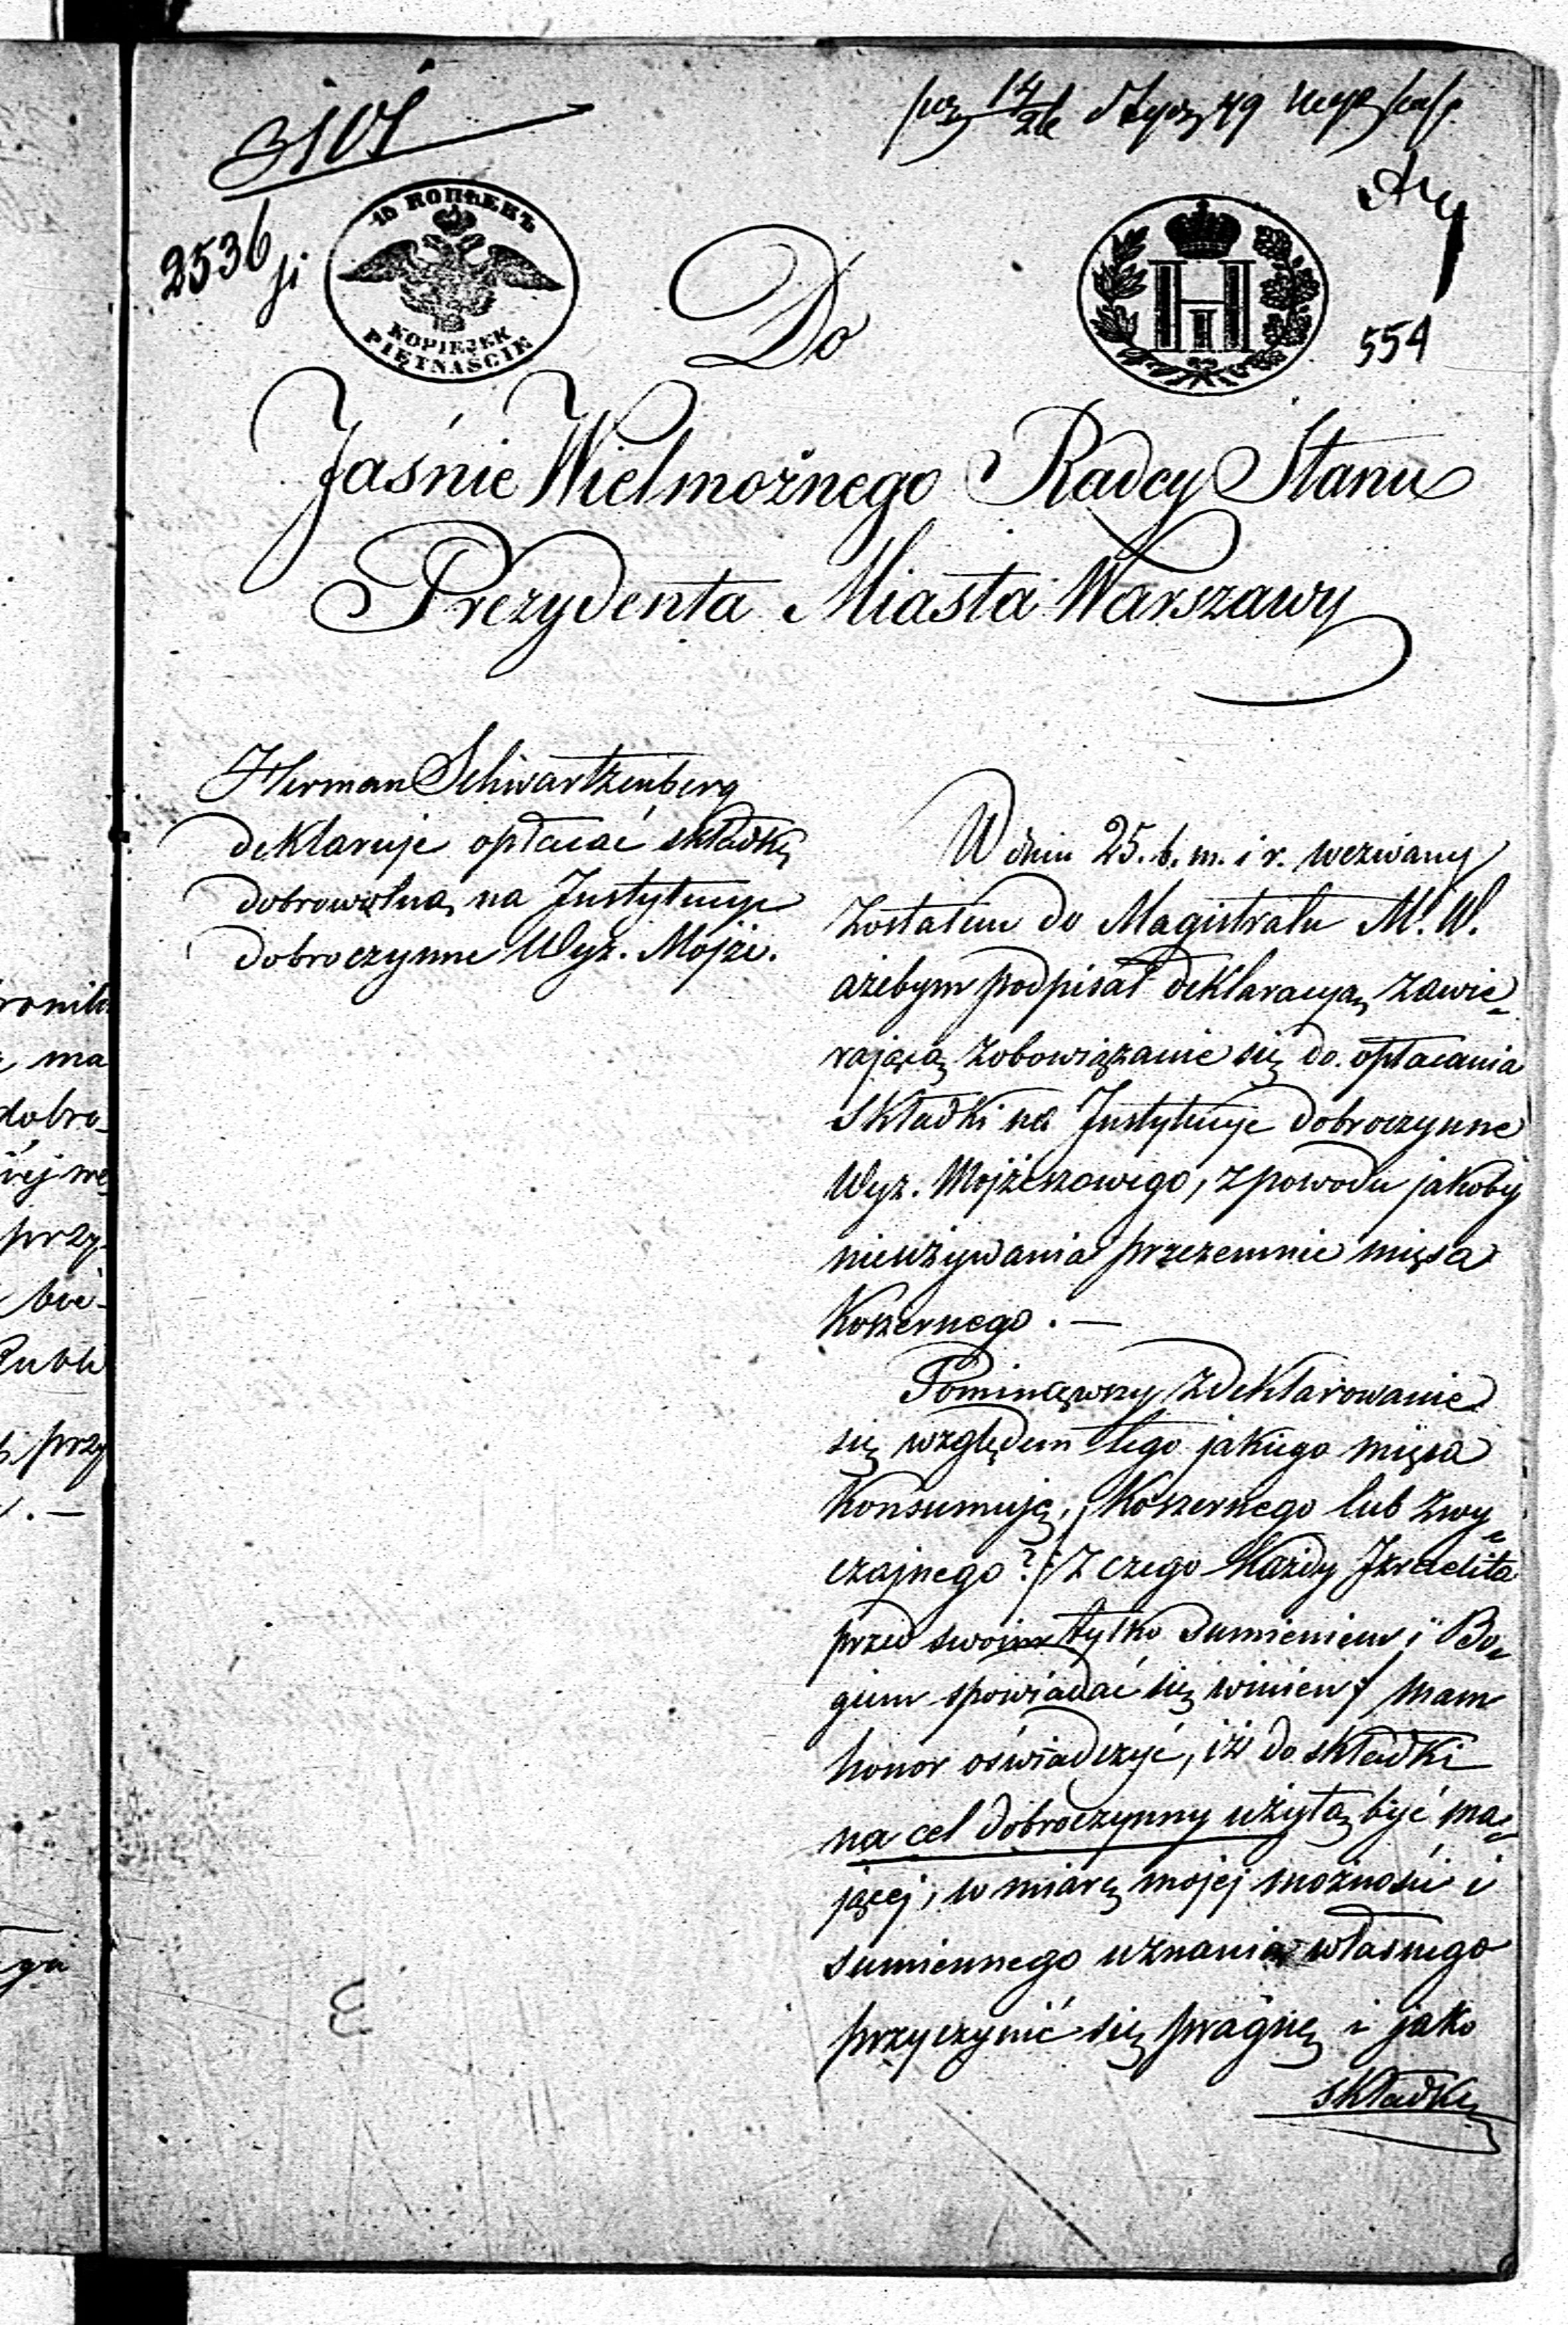 3101
14/26 Stycz 49
2536
15 КОПѢЕКЪ
KOPIEJEK
PIĘTNAŚCIE
Do
554
Jaśnie Wielmożnego Radcy Stanu
Prezydenta Miasta Warszawy
Herman Schwartzenberg
deklaruje opłacać składkę
dobrowolną na Instytucye
dobroczynne Wyz. Mojże.
W dniu 25. b. m. i r. wezwany
zostałem do Magistratu M. W.
ażebym podpisał deklaracyą zawie„
rającą zobowiązanie się do opłacania
składki na Instytucye dobroczynne
Wyz. Mojżeszowego, z powodu jakoby
nieużywania przezemnie mięsa
Koszernego. —
Pominąwszy zdeklarowanie
się względem tego jakiego mięsa
konsumuję, Koszernego lub zwy„
czajnego? /: z czego każdy Izraelita
przed swoim tylko sumieniem i Bo„
giem spowiadać się winien / mam
honor oświadczyć, iż do składki
na cel dobroczynny użytą być ma„
jącej, w miarę mojej możności i
sumiennego uznania własnego
przyczynić się pragnę i jako
składkę
ronilu
ma
dobro„
przy„
bie„
Rubli
przy